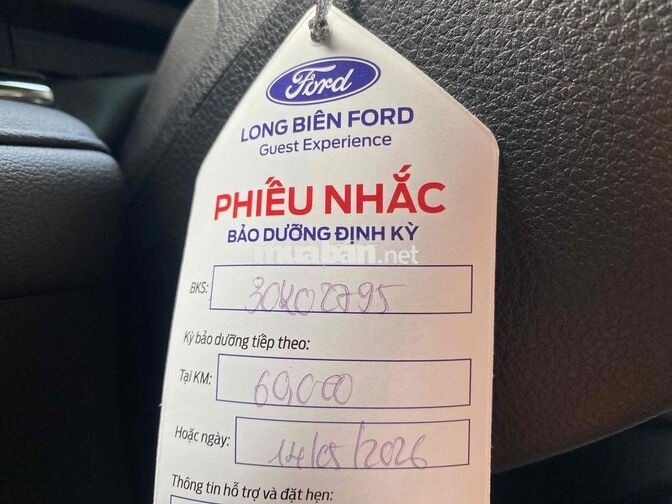 Ford
LONG BIÊN FORD
Guest Experience
PHIẾU NHẮC
BẢO DƯỠNG ĐỊNH KỲ
muaban.net
BKS: 30K02795
Kỳ bảo dưỡng tiếp theo:
Tại KM: 60,000
Hoặc ngày: 14/05/2026
Thông tin hỗ trợ và đặt hẹn: